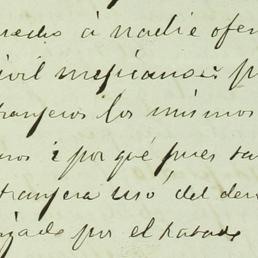 recho á nadie ofen
civil mejicanos; p
tranjeros los mismos
nos i por qué pues la
tranjera usó del dere
gado por el tratado